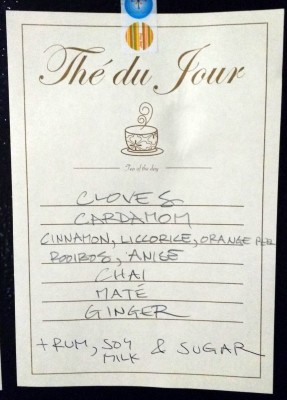 Thé du Jour
Tea of the day
CLOVES
CARDAMOM
CINNAMON, LICCORICE, ORANGE PEEL
ROOIBOS, ANISE
CHAI
MATÉ
GINGER
+ RUM, SOY MILK & SUGAR